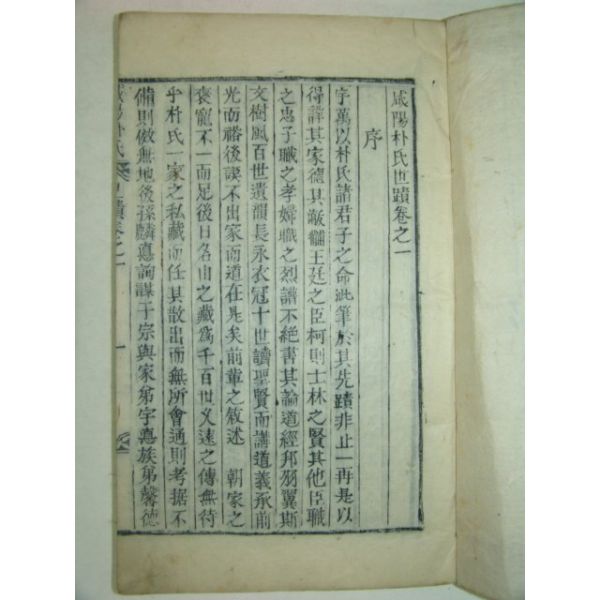 咸陽朴氏世蹟卷之一
序
宇萬以朴氏諸君子之命泚筆於其先蹟非止一再是以
得諱其家德其敵愾王廷之臣柯則士林之賢其他臣職
之忠子職之孝婦職之烈譜不絕書其論道經邦羽翼斯
文樹風百世遺韻長永衣冠十世讀聖賢而講道義承前
光而裕後謨不出家而道在是矣前輩之敘述 朝家之
褒寵不一而足後日名山之藏爲千百世久遠之傳無待
乎朴氏一家之私藏而任其散出而無所會通則考据不
備則倣無地後孫麟憙詢謀于宗與家弟字憙族弟馨德
咸陽朴氏世蹟卷之一 一